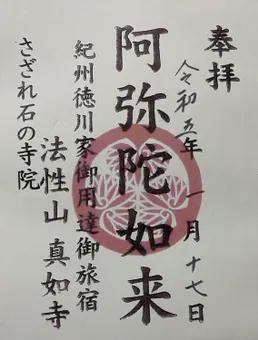 奉拝
令和五年一月十七日
阿弥陀如来
紀州徳川家御用達御旅宿
法性山 真如寺
さざれ石の寺院